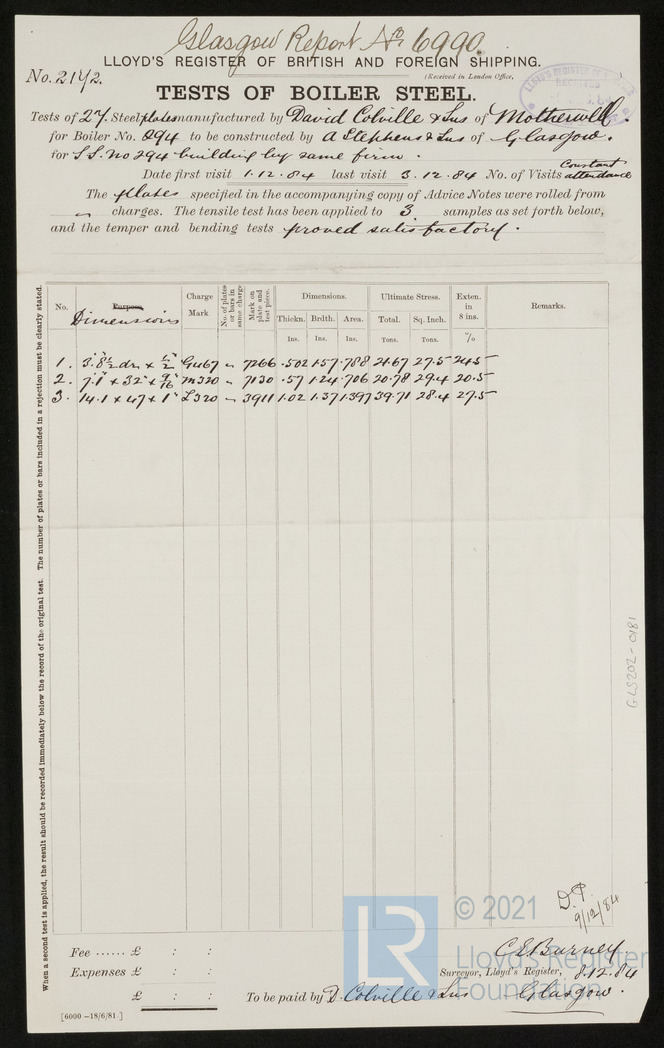 Glasgow Report No 6990
LLOYD'S REGISTER OF BRITISH AND FOREIGN SHIPPING.
No. 2142.
(Received in London Office,
TESTS OF BOILER STEEL.
Tests of 27 Steel plates manufactured by David Colville & Sns of Motherwell.
for Boiler No. 294 to be constructed by A Stephens & Sns of Glasgow.
for S.S. No 294 building by same firm.
Constant
Date first visit 1.12.84 last visit 3.12.84 No. of Visits attendance
The plates specified in the accompanying copy of Advice Notes were rolled from
" charges. The tensile test has been applied to 3 samples as set forth below,
and the temper and bending tests proved satisfactory.
No. Purpose. Dimensions Charge Mark No. of plates or bars in same charge Mark on plate and test piece. Dimensions. Ultimate Stress. Exten. in 8 ins. Remarks.
Thickn. Brdth. Area. Total. Sq. Inch.
Ins. Ins. Ins. Tons. Tons. %
1. 3.8½ dr x ½ 7266 .502 1.57 .788 21.67 27.5 24.5
2. 7.1 x 32 x 9/16 M320 " 7130 .57 1.24 .706 20.78 29.4 20.5
3. 14.1 x 47 x 1" L320 " 3911 1.02 1.37 1.397 39.71 28.4 27.5
When a second test is applied, the result should be recorded immediately below the record of the original test. The number of plates or bars included in a rejection must be clearly stated.
GLS202-0181
D.P.
9/12/84
© 2021
Lloyd's Register
Foundation
LR
Fee ...... £ : :
Expenses £ : :
£ : :
C E Burney
Surveyor, Lloyd's Register, 8.12.84
To be paid by D. Colville & Sns Glasgow.
[6000 –18/6/81.]